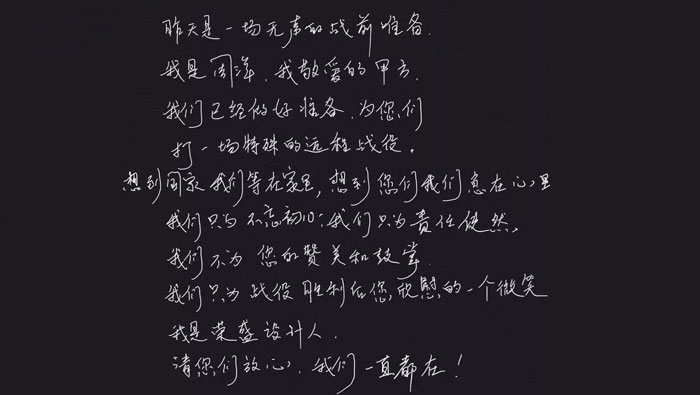 昨天是一场无声的战前准备.
我是周洋,我敬爱的甲方.
我们已经做好准备.为您们
打一场特殊的远程战役。
想到国家我们等在家里,想到您们我们急在心里
我们只为不忘初心:我们只为责任使然,
我们不为您的赞美和鼓掌
我们只为战役胜利后您欣慰的一个微笑
我是荣盛设计人.
请您们放心.我们一直都在!